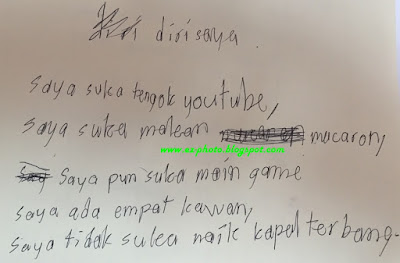 diri saya.
saya suka tengok youtube,
saya suka makan macaron,
www.ezphoto.blogspot.com
saya pun suka main game
saya ada empat kawan,
saya tidak suka naik kapal terbang.